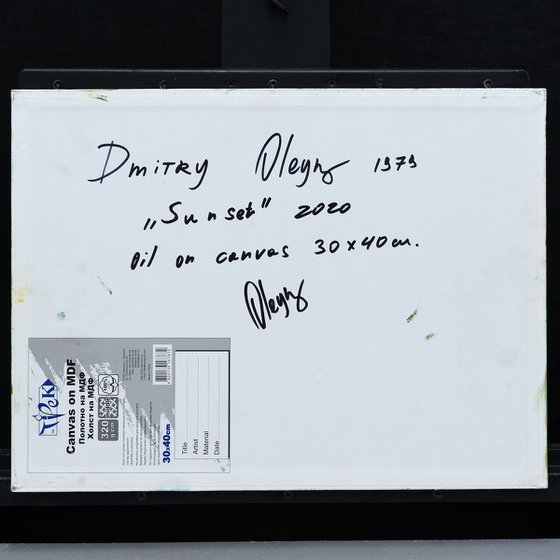 Dmitry Oleyn 1979
„Sunset" 2020
Oil on canvas 30x40cm.
Oleyn
Canvas on MDF
Полотно на МДФ
Холст на МДФ
320
g cm
100%
30x40cm
Title
Artist
Material
Date